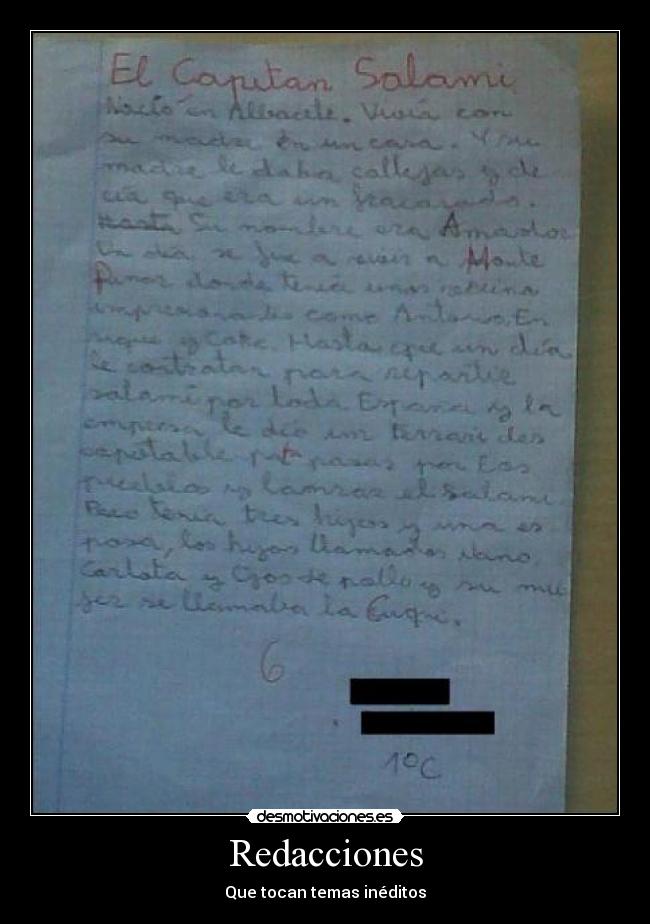 El Capitan Salami
Nació en Albacete. Vivía con
su madre en un casa. Y su
madre le daba collejas y de
cia que era un fracasado.
Hasta Su nombre era Amador
Un día se fue a vivir a Monte
Pinar donde tenía unos
como Antonio, En
rique y Coke. Hasta que un día
le contratan para repartir
salami por toda España y la
empresa le dio un ferrari des
capotable para pasar por los
pueblos y lanzar el salami.
Pero tenía tres hijos y una es
posa, los hijos llamados
Carlota y Ojos de pollo y su mu
jer se llamaba la Cuqui.
6
1ºC
desmotivaciones.es
Redacciones
Que tocan temas inéditos